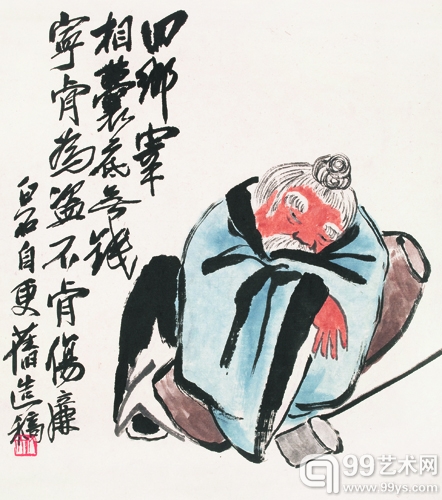 回鄉宰
相囊底無錢
寧肯為盜不肯傷廉
白石自更舊造稿
99艺术网
www.99ys.com